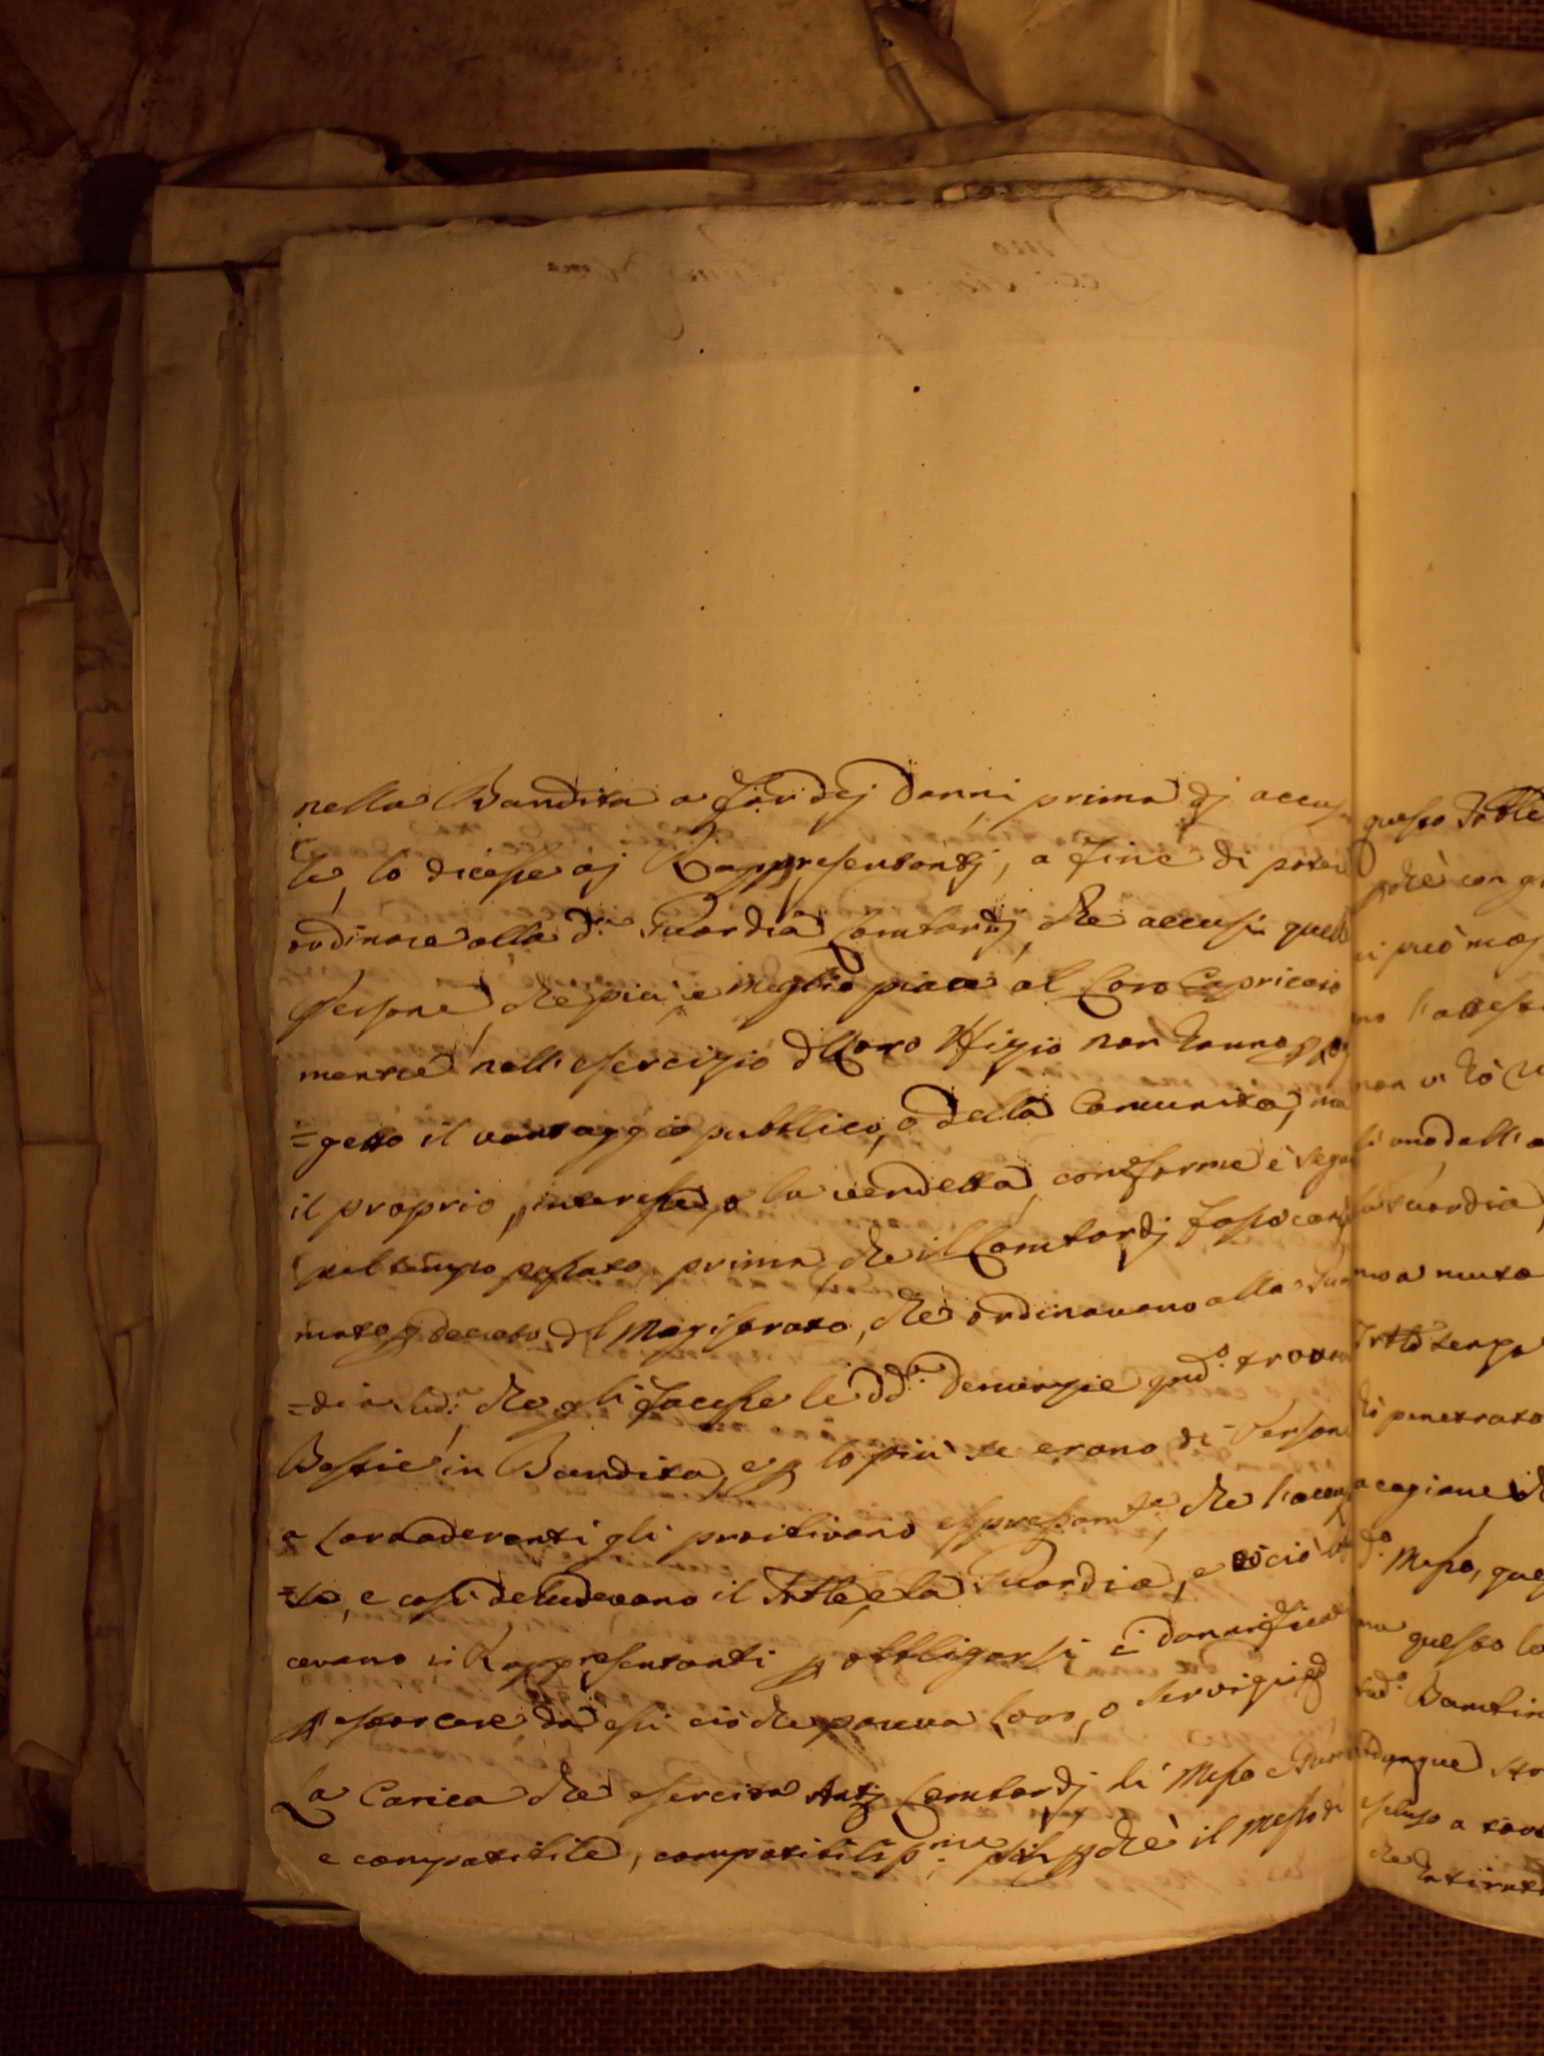 nella Bandita a far dej Danni prima dj accus
le, lo dicesse aj Rappresentantj, a fine di poter
ordinare alla d.a Guardia Lombardj, che accusi quell
Persone che più, e meglio piace al Loro Capriccio
mentre nell'esercizio del Loro Ufizio non hanno p og
=getto il vantaggio pubblico, o della Comunità, ma
il proprio interesse, o la vendetta, conforme è segu
nel tempo passato prima, che il Lombardj fosse con
mato p decreto del Magistrato, che ordinavano alla Gua
=dia sud.a che gli facesse le dd.e denunzie qnd.o trova
Bestie in Bandita, e p lo più se erano di Person
a Loro aderenti gli proibivano espressam.te, che l'accu
=se, e così deludevano il Trble, e la Guardia, e ciò
cevano i Rappresentanti p obbligarsi i dannifica
p estorcere da essi ciò che pareva Loro, o servigi
La Carica che esercita Antj Lombardj di Messo e Guar
e compatibile, compatibiliss.ma perchè il Messo di
questo Trble
perchè con g
si può mag
no l'attest
non vi hà
li uno dell'
la Guardia
mo a muta
Trble senza
hà penetrato
a cagione
d.o Messo, que
ma questo lo
sud.o Bambin
dunque
escluso a
che